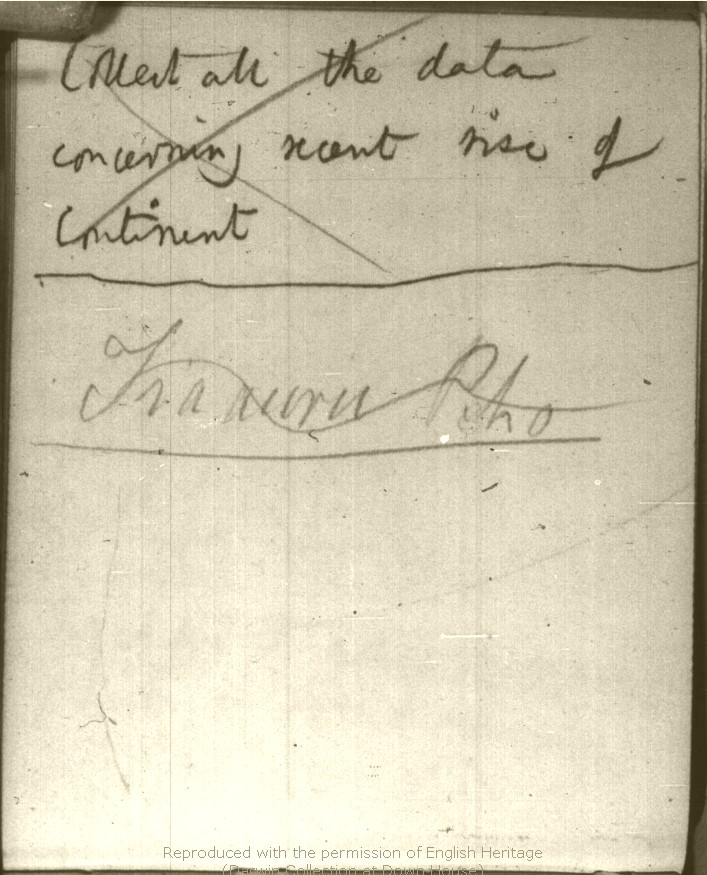 Collect all the data
concerning recent rise of
Continent
Reproduced with the permission of English Heritage
(Darwin Collection at Down House)